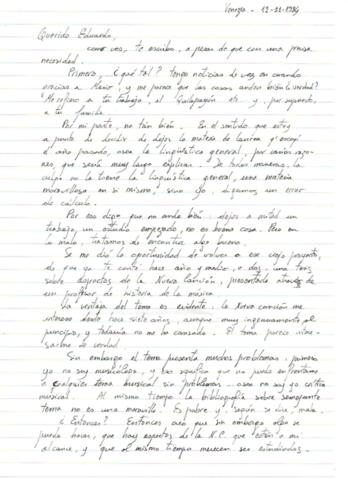 Venezia - 12-11-1984
Querido Eduardo,
como ves, te escribo, a pesar de que con una precisa
necesidad.
Primero, ¿qué tal? tengo noticias de vez en cuando
gracias a y me parece que las cosas andan bien ¿verdad?
Me refiero a tu trabajo, al Quilapayún etc. y, por supuesto,
a tu familia.
Por mi parte, no tan bien. En el sentido que estoy
a punto de decidir de dejar la materia de laurea q' escogí
el año pasado, osea la Lingüística general, por varias razo-
nes, que sería muy largo explicar. De todas maneras, la
culpa no la tiene la lingüística general, una materia
maravillosa en sí misma, sino yo, digamos un error
de cálculo.
Por eso digo que no ando bien, dejar a mitad un
trabajo, un estudio empezado, no es buena cosa. Pero en
lo malo, tratamos de encontrar algo bueno.
Se me dio la oportunidad de volver a ese viejo proyecto,
de que ya te conté hace año y medio, o dos, una tesis
sobre aspectos de la Nueva Canción, presentada a través de
un profesor de historia de la música.
La ventaja del tema es evidente, la nueva canción me
interesa desde hace siete años, aunque muy ingenuamente al
principio, y todavía no me ha cansado. El tema parece intere-
sarlos de verdad.
Sin embargo el tema presenta muchos problemas, primero
yo no soy musicólogo, y eso significa que no puedo enfrentarme
a cualquier tema musical sin problemas... osea no soy yo crítico
musical. Al mismo tiempo la bibliografía sobre semejante
tema no es una maravilla. Es pobre y, según se dice, mala.
¿Entonces? Entonces creo que sin embargo algo se
pueda hacer, que hay aspectos de la N.C. que están a mi
alcance, y que al mismo tiempo merecen ser estudiados.